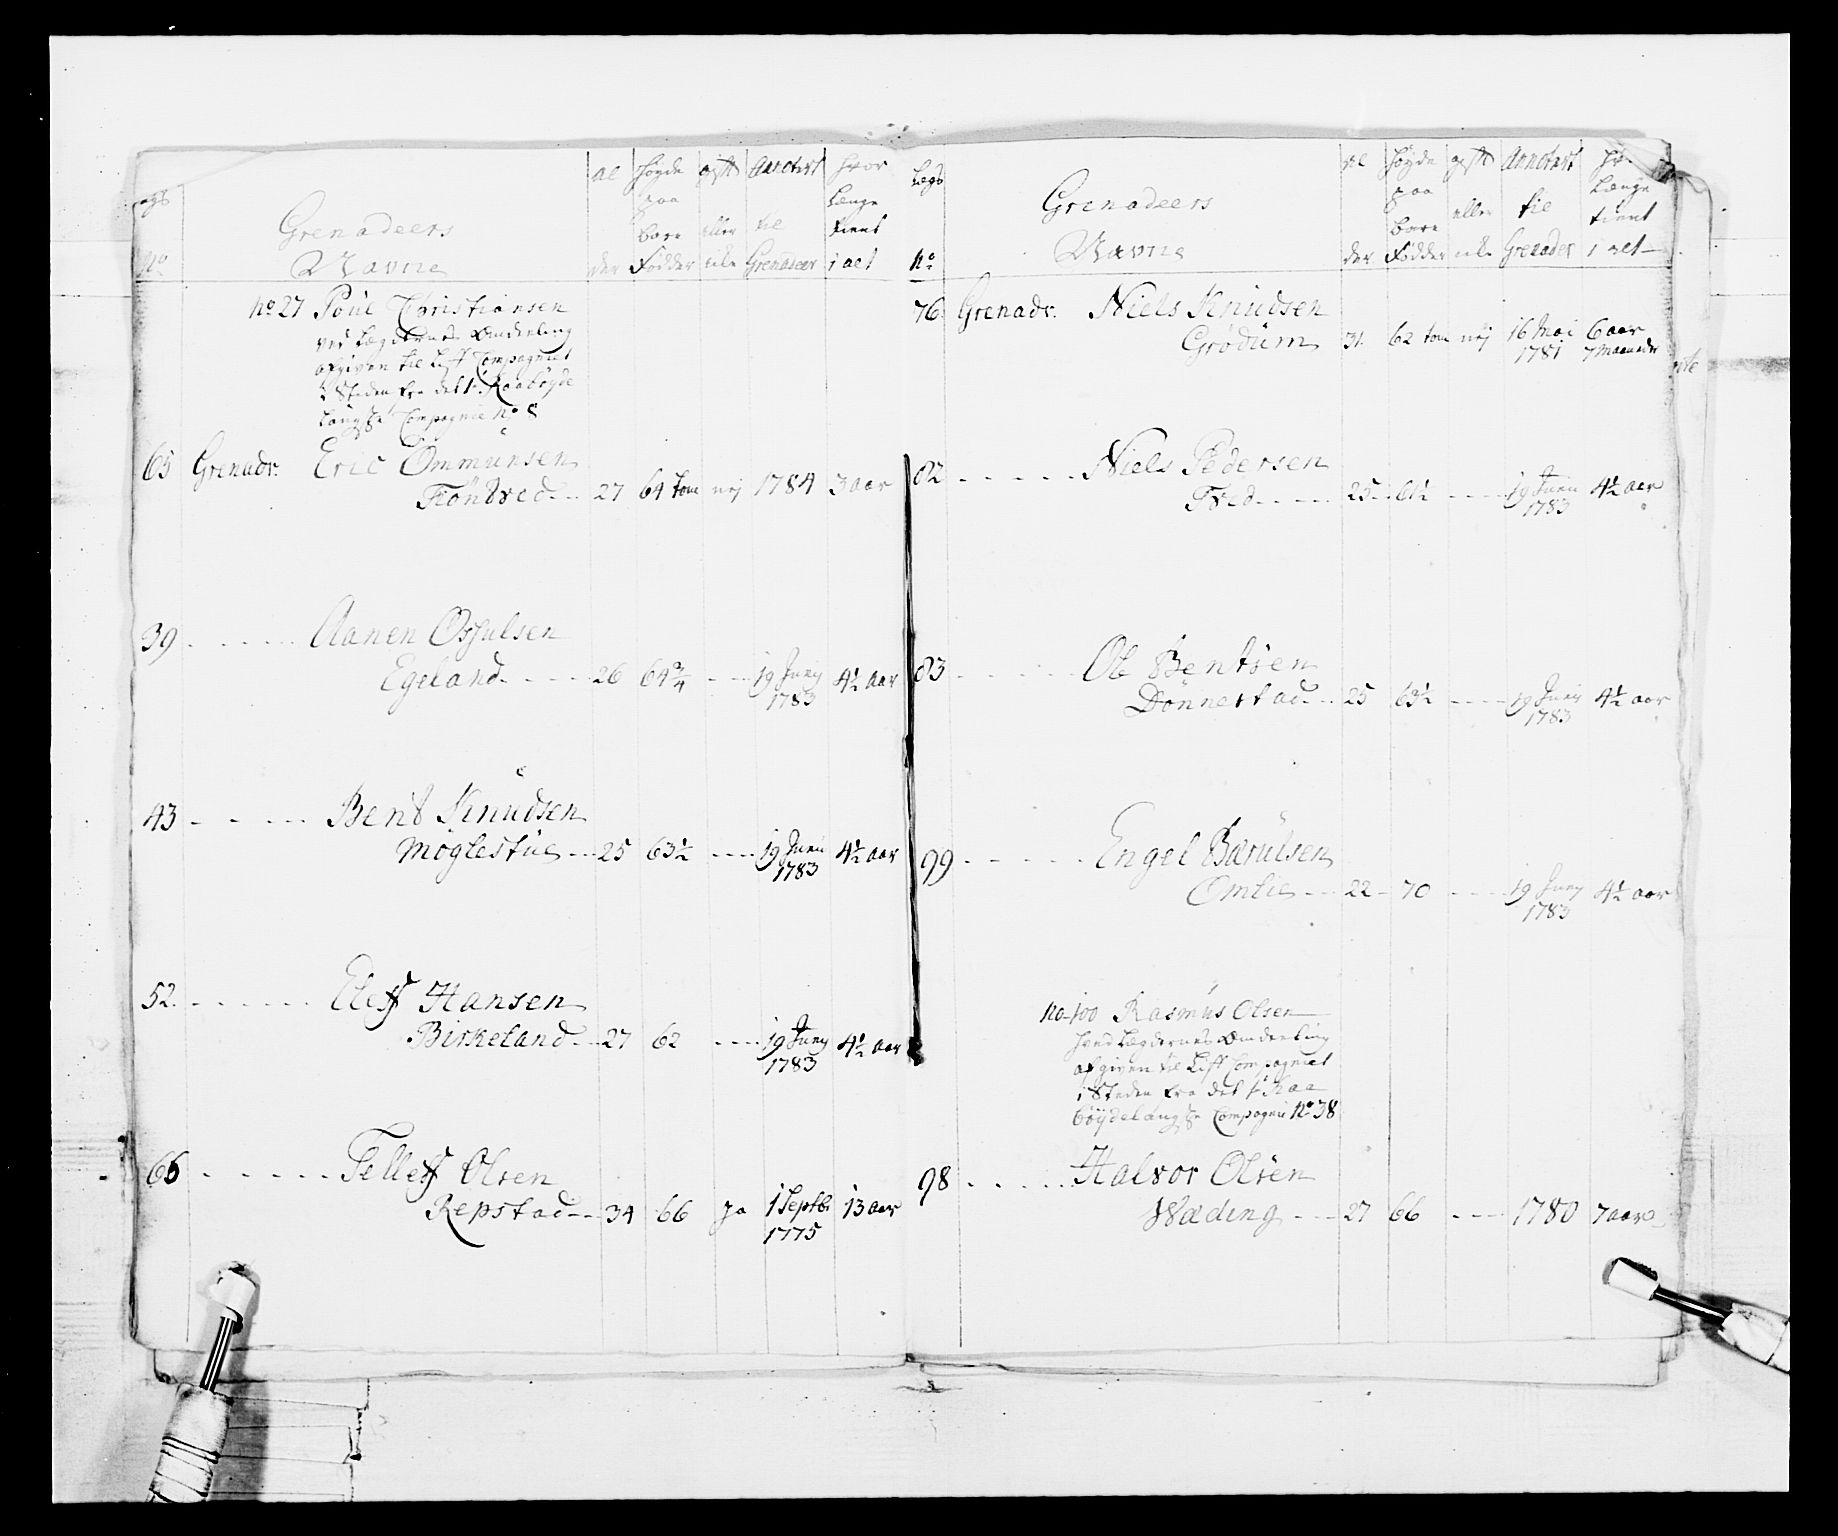 Lægs
No
Grenadeers
Navne
al
der
Høyde
paa
bare
Fødder
gift
eller
eike
Annotert
til
Grenadeer
Hvor
Længe
tient
i alt
no 27 Poul Christiansen
ved Lægdernes Omdeeling
afgiven til Lift Compagniet
i Steden fra det 1. Raabøyde
Laugske Compagnie No 8
65 Grenadr. Eric Ommunsen
Töntved 27 64 tom nej 1784 3 aar
39 Aanen Osjulsen
Egeland 26 64¾ 19 Juny 1783 4½ aar
43 Bent Knudsen
Møglestue 25 63½ 19 Juny 1783 4½ aar
52 Eleff Hansen
Birkeland 27 62 19 Juny 1783 4½ aar
66 Telleff Olsen
Repstad 34 66 Ja 1 Septbr 1775 13 aar
Lægs
No
Grenadeers
Navne
al
der
Høyde
paa
bare
Fødder
gift
eller
eike
Annotert
til
Grenader
Længe
tient
i alt
76 Grenadr. Niels Knudsen
Grödum 31 62 tom nej 16 Mai 1781 6 aar 7 Maaneder
82 Niels Pedersen
Tved 25 61½ 19 Juny 1783 4½ aar
83 Ole Bentsen
Dönnestad 25 63½ 19 Juny 1783 4½ aar
99 Engel Bærulsen
Omlie 22 70 19 Juny 1783 4½ aar
no 100 Rasmus Olsen
ved Lægdernes Omdeeling
afgiven til Lift Compagniet
i Steden fra det 1. Raa
böydelaugske Compagnie No 38
98 Halvor Olsen
Wæding 27 66 1780 7 aar